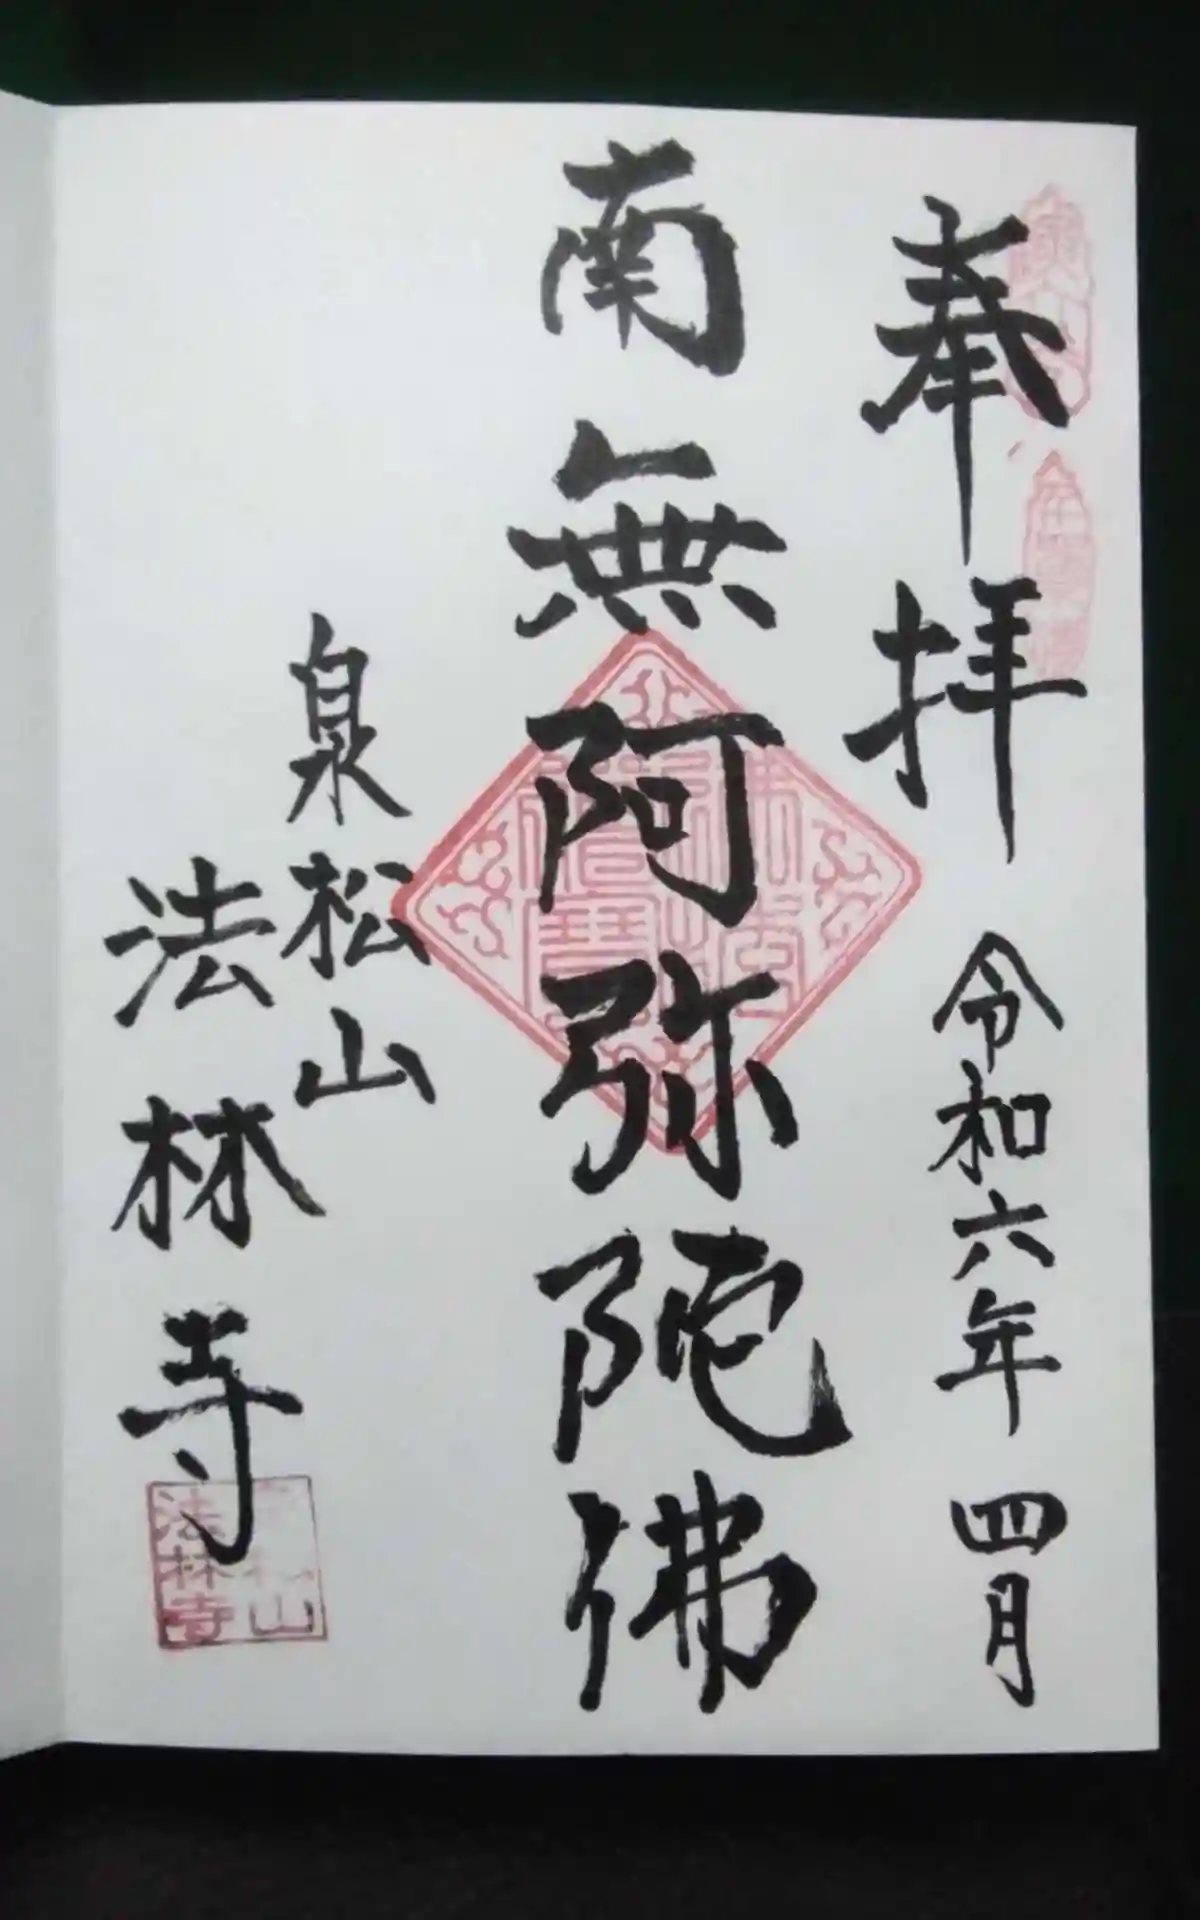 奉拝
令和六年四月
南無阿弥陀佛
泉松山
法林寺
佛法僧寶
泉松山
法林寺